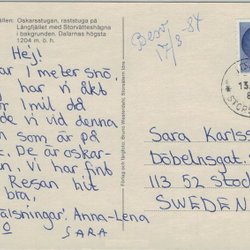 ällen: Oskarsstugan, raststuga på
Långfjället med Storvätteshågna
i bakgrunden. Dalarnas högsta
1204 m. ö. h.
Besv
17/3-84
Hej!
ar 1 meter snö.
har vi åkt
1 mil då
vid denna
n som är på
t. De är oskar-
an. Vi har fint
Resan hit
bra,
älsningar: Anna-Lena
SARA
Förlag och färgfoto: Bruno Westerdahl, Storvätten
13.
Sara Karlss
Döbelnsgat.
113 52 Stoc
SWEDEN